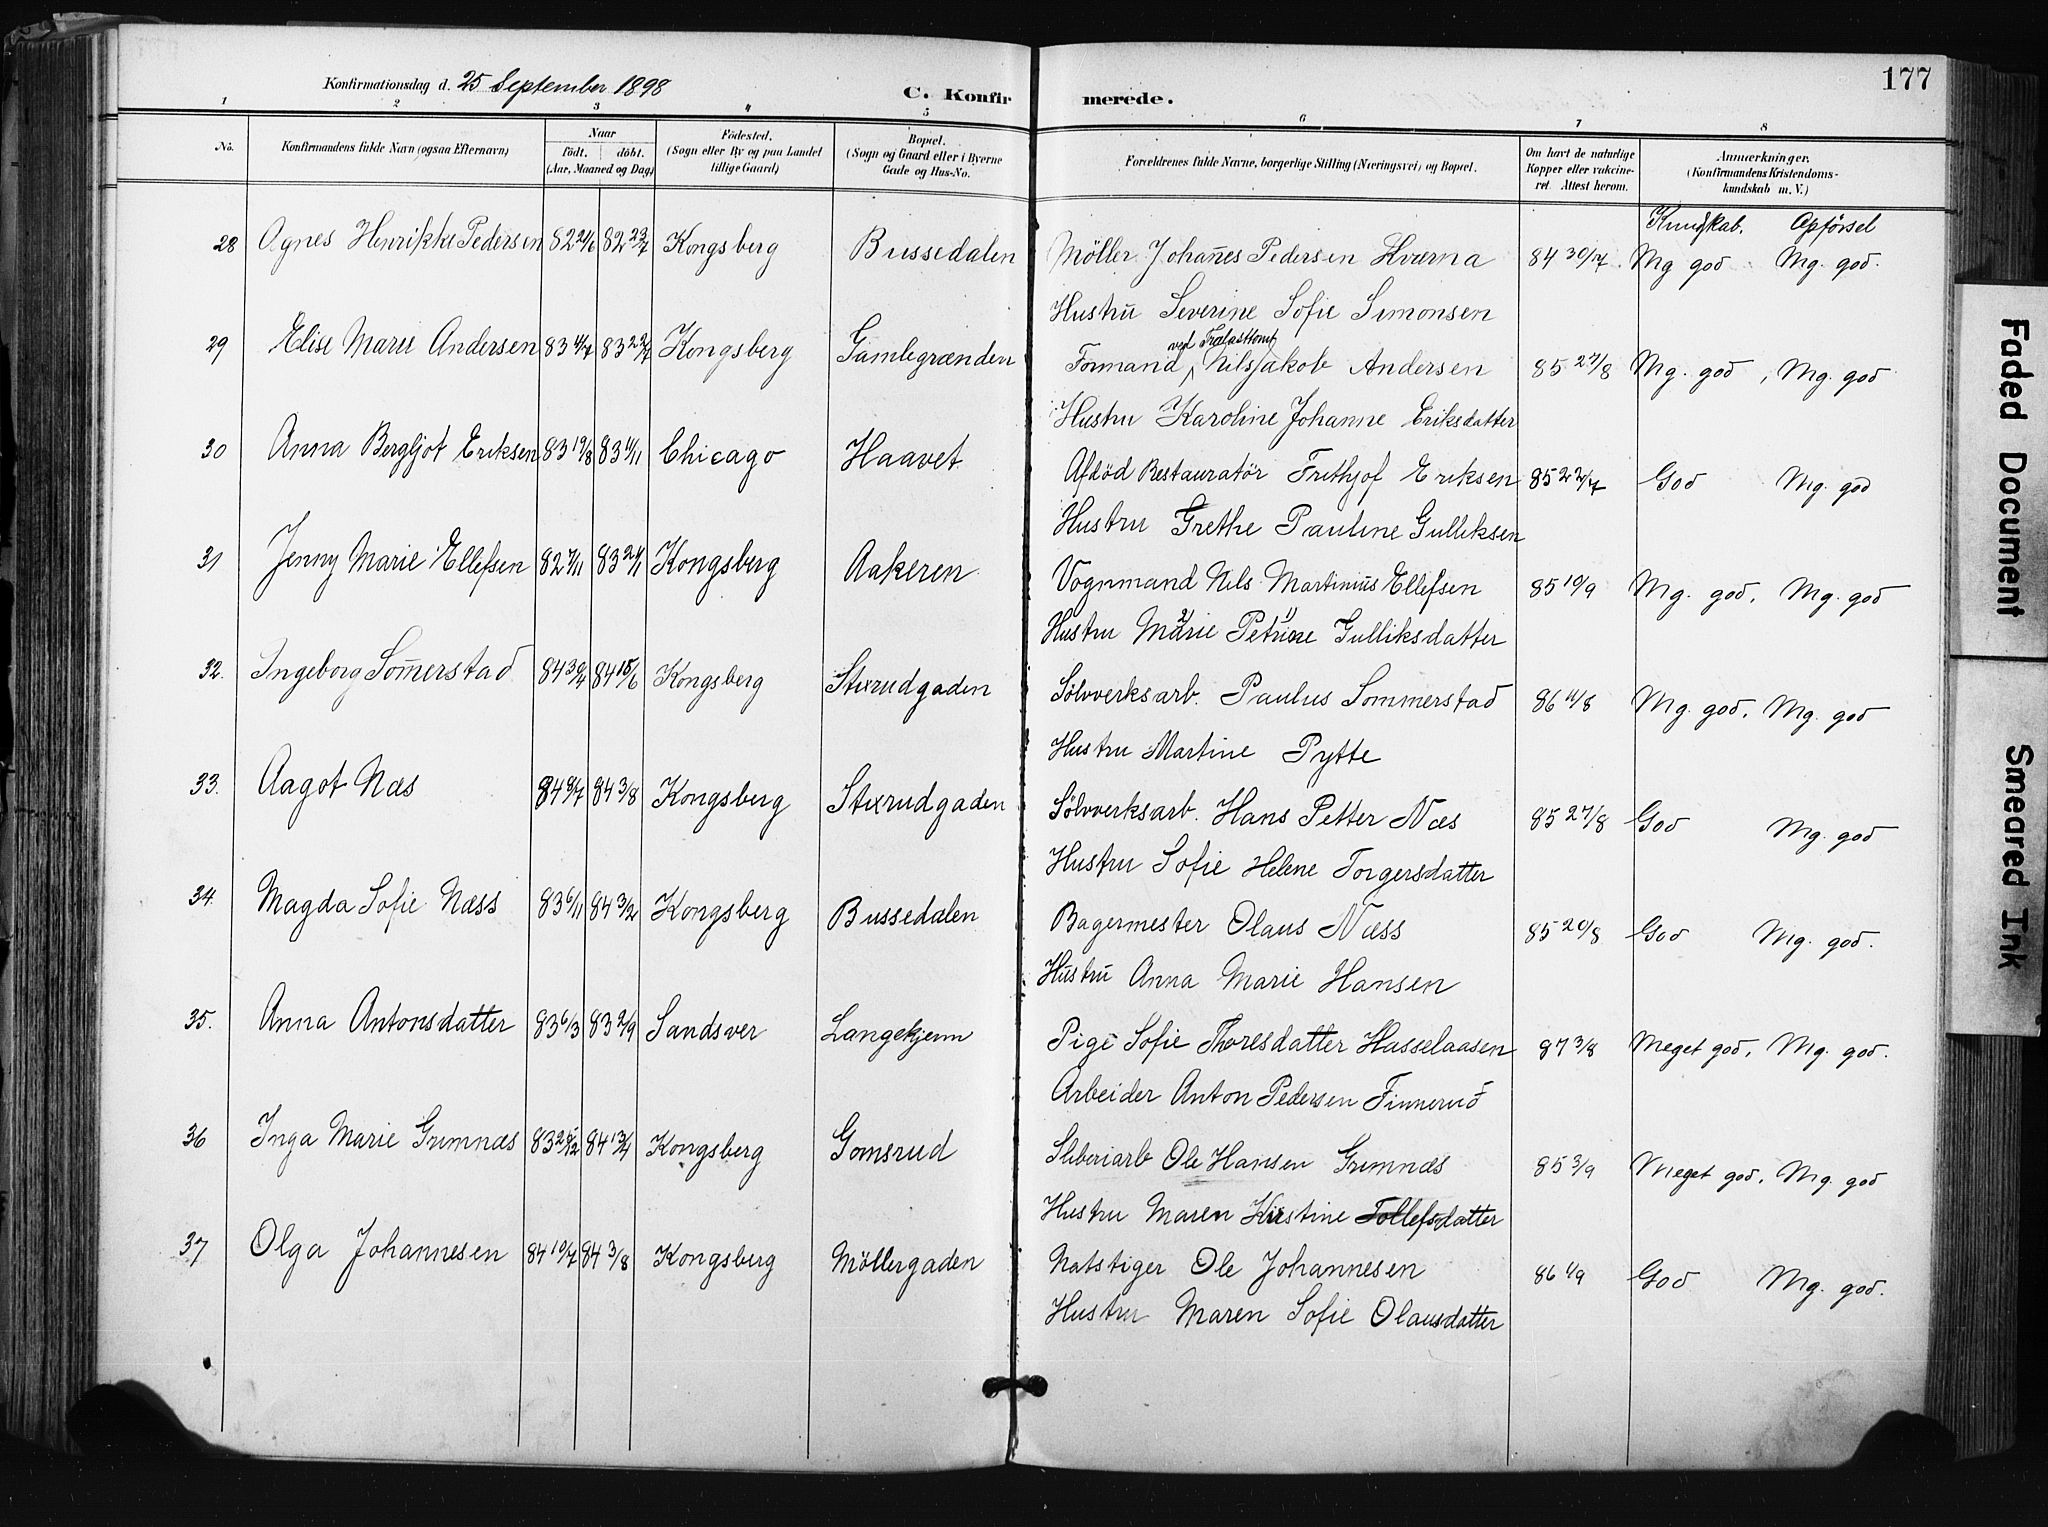 177
Konfirmationsdag d. 25 September 1898
C. Konfirmerede.
1 2 3 4 5 6 7 8
No. Konfirmandens fulde Navn (ogsaa Efternavn) Naar Födt. döbt. (Aar, Maaned og Dag) Födested. (Sogn eller By og paa Landet tillige Gaard) Bopæl. (Sogn og Gaard eller i Byerne Gade og Hus-No. Forældrenes fulde Navne, borgerlige Stilling (Næringsvei) og Bopæl. Om havt de naturlige Kopper eller vakcineret. Attest herom. Anmærkninger. (Konfirmandens Kristendomskundskab m. V.)
Kundskab. Opförsel
28 Agnes Henrikke Pedersen 82 2/6 82 23/7 Kongsberg Bussedalen Möller Johan̄es Pedersen Kværna 84 30/7 Mg god Mg. god.
Hustru Severine Sofie Simonsen
29 Elise Marie Andersen 83 4/7 83 22/7 Kongsberg Gamlegrænden Formand ved Trælasttomt Nils Jakob Andersen 85 27/8 Mg. god, Mg. god
Hustru Karoline Johanne Eriksdatter
30 Anna Bergljot Eriksen 83 19/8 83 4/11 Chicago Haavet Afdöd Restauratör Frithjof Eriksen 85 22/7 God Mg. god
Hustru Grethe Pauline Gulliksen
31 Jenny Marie Ellefsen 82 7/11 83 21/1 Kongsberg Aakeren Vognmand Nils Martinius Ellefsen 85 19/9 Mg. god, Mg. god
Hustru Marie Petrine Gulliksdatter
32. Ingeborg Som̄erstad 84 30/4 84 15/6 Kongsberg Stixrudgaden Sölvverksarb. Paulus Sommerstad 86 11/8 Mg. god, Mg. god
Hustru Martine Pytte
33. Aagot Næs 84 6/7 84 3/8 Kongsberg Stixrudgaden Sölvverksarb. Hans Petter Næs 85 27/8 God Mg. god
Hustru Sofie Helene Torgersdatter
34. Magda Sofie Næss 83 6/11 84 3/2 Kongsberg Bussedalen Bagermester Olaus Næss 85 20/8 God Mg. god.
Hustru Anna Marie Hansen
35. Anna Antonsdatter 83 6/3 83 2/9 Sandsver Langekjenn Pige Sofie Thoresdatter Hasselaasen 87 3/8 Meget god, Mg. god.
Arbeider Anton Pedersen Finnerud
36 Inga Marie Grimnæs 83 2/12 84 13/4 Kongsberg Gomsrud Sliberiarb Ole Hansen Grimnæs 85 3/9 Meget god, Mg. god
Hustru Maren Kirstine Tollefsdatter
37 Olga Johannesen 84 10/7 84 3/8 Kongsberg Möllergaden Natstiger Ole Johannesen 86 1/9 God Mg. god.
Hustru Maren Sofie Olausdatter
Faded Document
Smeared Ink